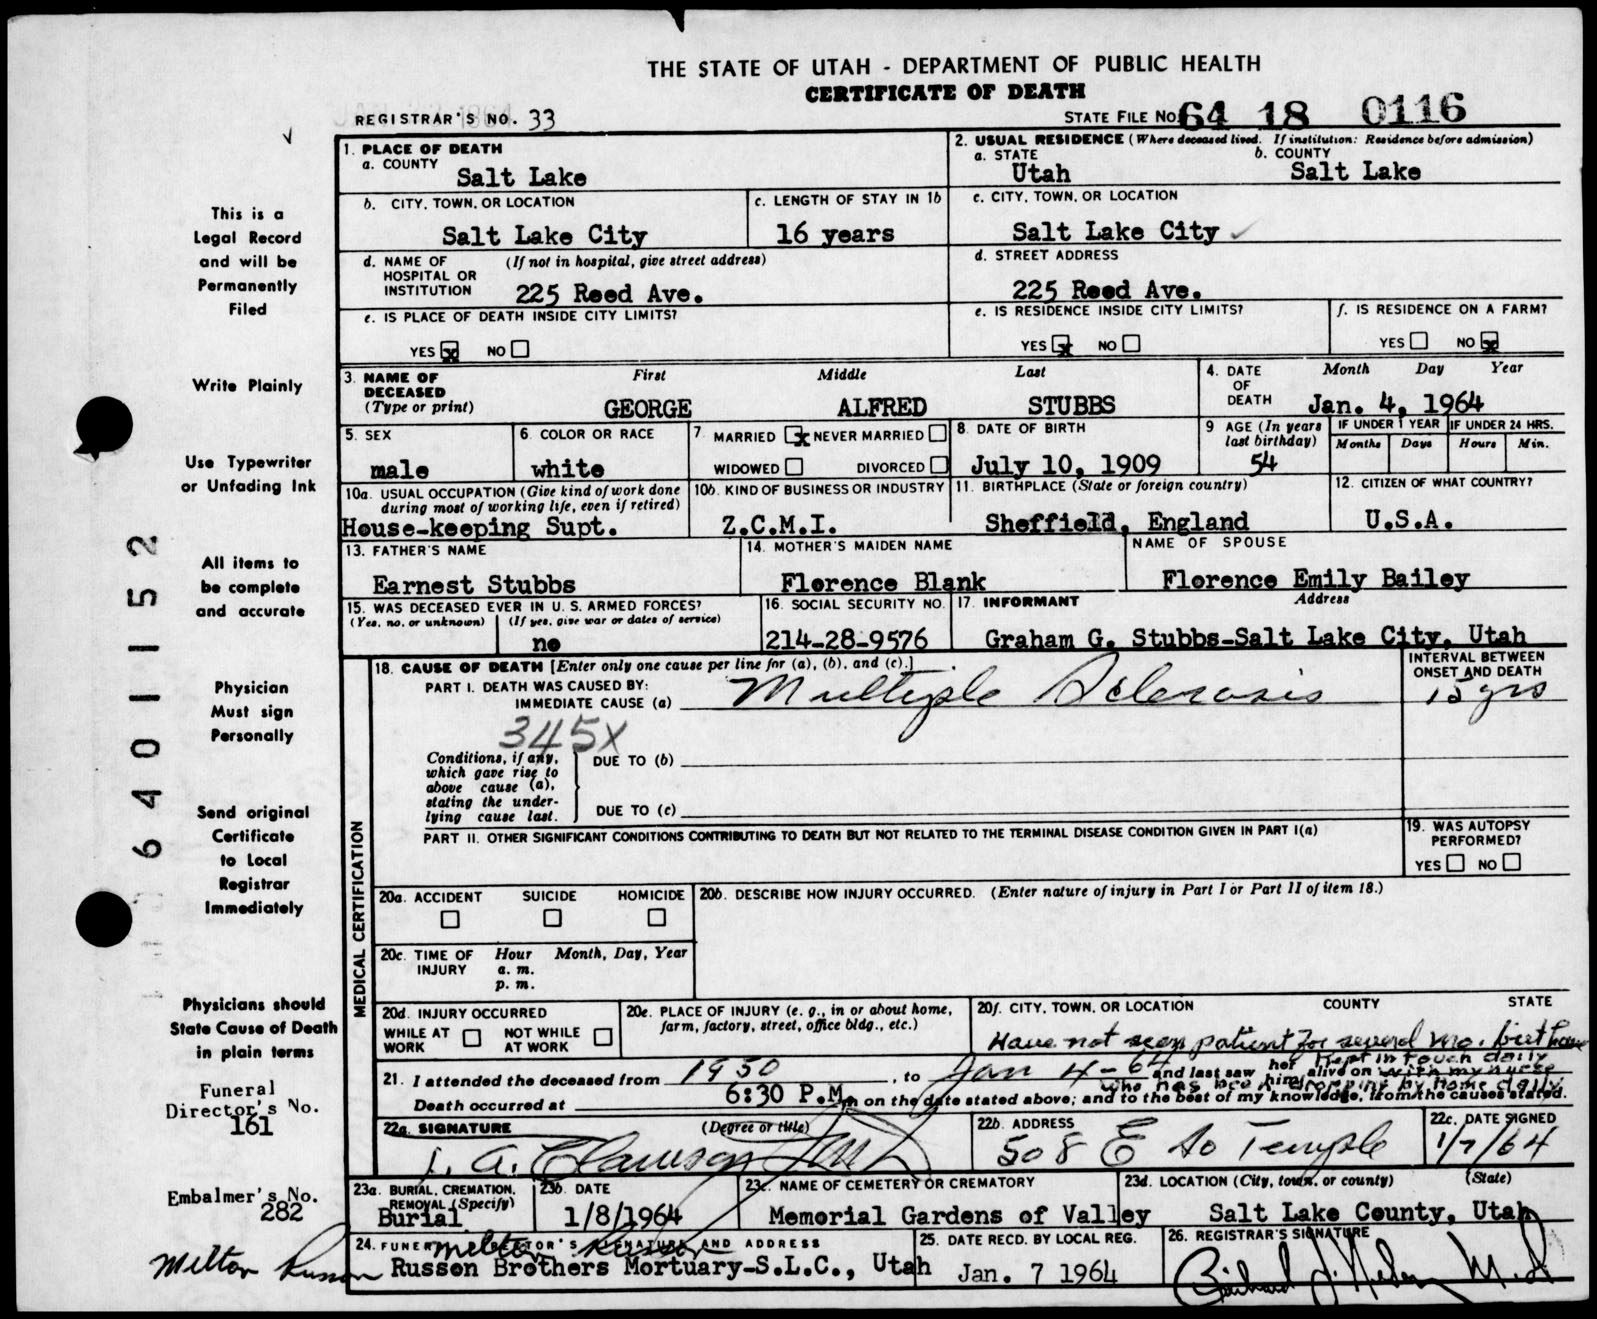 THE STATE OF UTAH - DEPARTMENT OF PUBLIC HEALTH
CERTIFICATE OF DEATH
REGISTRAR'S NO. 33
STATE FILE NO. 64 18 0116
This is a
Legal Record
and will be
Permanently
Filed
Write Plainly
Use Typewriter
or Unfading Ink
All items to
be complete
and accurate
Physician
Must sign
Personally
Send original
Certificate
to Local
Registrar
Immediately
Physicians should
State Cause of Death
in plain terms
Funeral
Director's No.
161
Embalmer's No.
282
Milton Russon
6401152
1. PLACE OF DEATH
a. COUNTY
Salt Lake
2. USUAL RESIDENCE (Where deceased lived. If institution: Residence before admission)
a. STATE b. COUNTY
Utah Salt Lake
b. CITY, TOWN, OR LOCATION
Salt Lake City
c. LENGTH OF STAY IN 1b
16 years
c. CITY, TOWN, OR LOCATION
Salt Lake City
d. NAME OF HOSPITAL OR INSTITUTION (If not in hospital, give street address)
225 Reed Ave.
d. STREET ADDRESS
225 Reed Ave.
e. IS PLACE OF DEATH INSIDE CITY LIMITS?
YES x NO
e. IS RESIDENCE INSIDE CITY LIMITS?
YES x NO
f. IS RESIDENCE ON A FARM?
YES NO x
3. NAME OF DECEASED (Type or print)
First Middle Last
GEORGE ALFRED STUBBS
4. DATE OF DEATH Month Day Year
Jan. 4, 1964
5. SEX
male
6. COLOR OR RACE
white
7. MARRIED x NEVER MARRIED
WIDOWED DIVORCED
8. DATE OF BIRTH
July 10, 1909
9. AGE (In years last birthday)
54
IF UNDER 1 YEAR IF UNDER 24 HRS.
Months Days Hours Min.
10a. USUAL OCCUPATION (Give kind of work done during most of working life, even if retired)
House-keeping Supt.
10b. KIND OF BUSINESS OR INDUSTRY
Z.C.M.I.
11. BIRTHPLACE (State or foreign country)
Sheffield, England
12. CITIZEN OF WHAT COUNTRY?
U.S.A.
13. FATHER'S NAME
Earnest Stubbs
14. MOTHER'S MAIDEN NAME
Florence Blank
NAME OF SPOUSE
Florence Emily Bailey
15. WAS DECEASED EVER IN U. S. ARMED FORCES?
(Yes, no, or unknown) (If yes, give war or dates of service)
no
16. SOCIAL SECURITY NO.
214-28-9576
17. INFORMANT Address
Graham G. Stubbs-Salt Lake City, Utah
MEDICAL CERTIFICATION
18. CAUSE OF DEATH [Enter only one cause per line for (a), (b), and (c).]
PART I. DEATH WAS CAUSED BY:
IMMEDIATE CAUSE (a) Multiple Sclerosis
INTERVAL BETWEEN ONSET AND DEATH
15 yrs
345X
Conditions, if any, which gave rise to above cause (a), stating the underlying cause last.
DUE TO (b)
DUE TO (c)
PART II. OTHER SIGNIFICANT CONDITIONS CONTRIBUTING TO DEATH BUT NOT RELATED TO THE TERMINAL DISEASE CONDITION GIVEN IN PART I(a)
19. WAS AUTOPSY PERFORMED?
YES NO
20a. ACCIDENT SUICIDE HOMICIDE
20b. DESCRIBE HOW INJURY OCCURRED. (Enter nature of injury in Part I or Part II of item 18.)
20c. TIME OF INJURY Hour Month, Day, Year
a. m.
p. m.
20d. INJURY OCCURRED
WHILE AT WORK NOT WHILE AT WORK
20e. PLACE OF INJURY (e. g., in or about home, farm, factory, street, office bldg., etc.)
20f. CITY, TOWN, OR LOCATION COUNTY STATE
Have not seen patient for several mo. but have
kept in touch daily
with my nurse
who has been dropping by home daily
21. I attended the deceased from 1950, to Jan 4-64 and last saw her him alive on
Death occurred at 6:30 P.M. m on the date stated above; and to the best of my knowledge, from the causes stated.
22a. SIGNATURE (Degree or title)
L. A. Clawson
22b. ADDRESS
508 E So Temple
22c. DATE SIGNED
1/7/64
23a. BURIAL, CREMATION, REMOVAL (Specify)
Burial
23b. DATE
1/8/1964
23c. NAME OF CEMETERY OR CREMATORY
Memorial Gardens of Valley
23d. LOCATION (City, town, or county) (State)
Salt Lake County, Utah
24. FUNERAL DIRECTOR'S SIGNATURE AND ADDRESS
Milton Russon
Russon Brothers Mortuary-S.L.C., Utah
25. DATE RECD. BY LOCAL REG.
Jan. 7 1964
26. REGISTRAR'S SIGNATURE